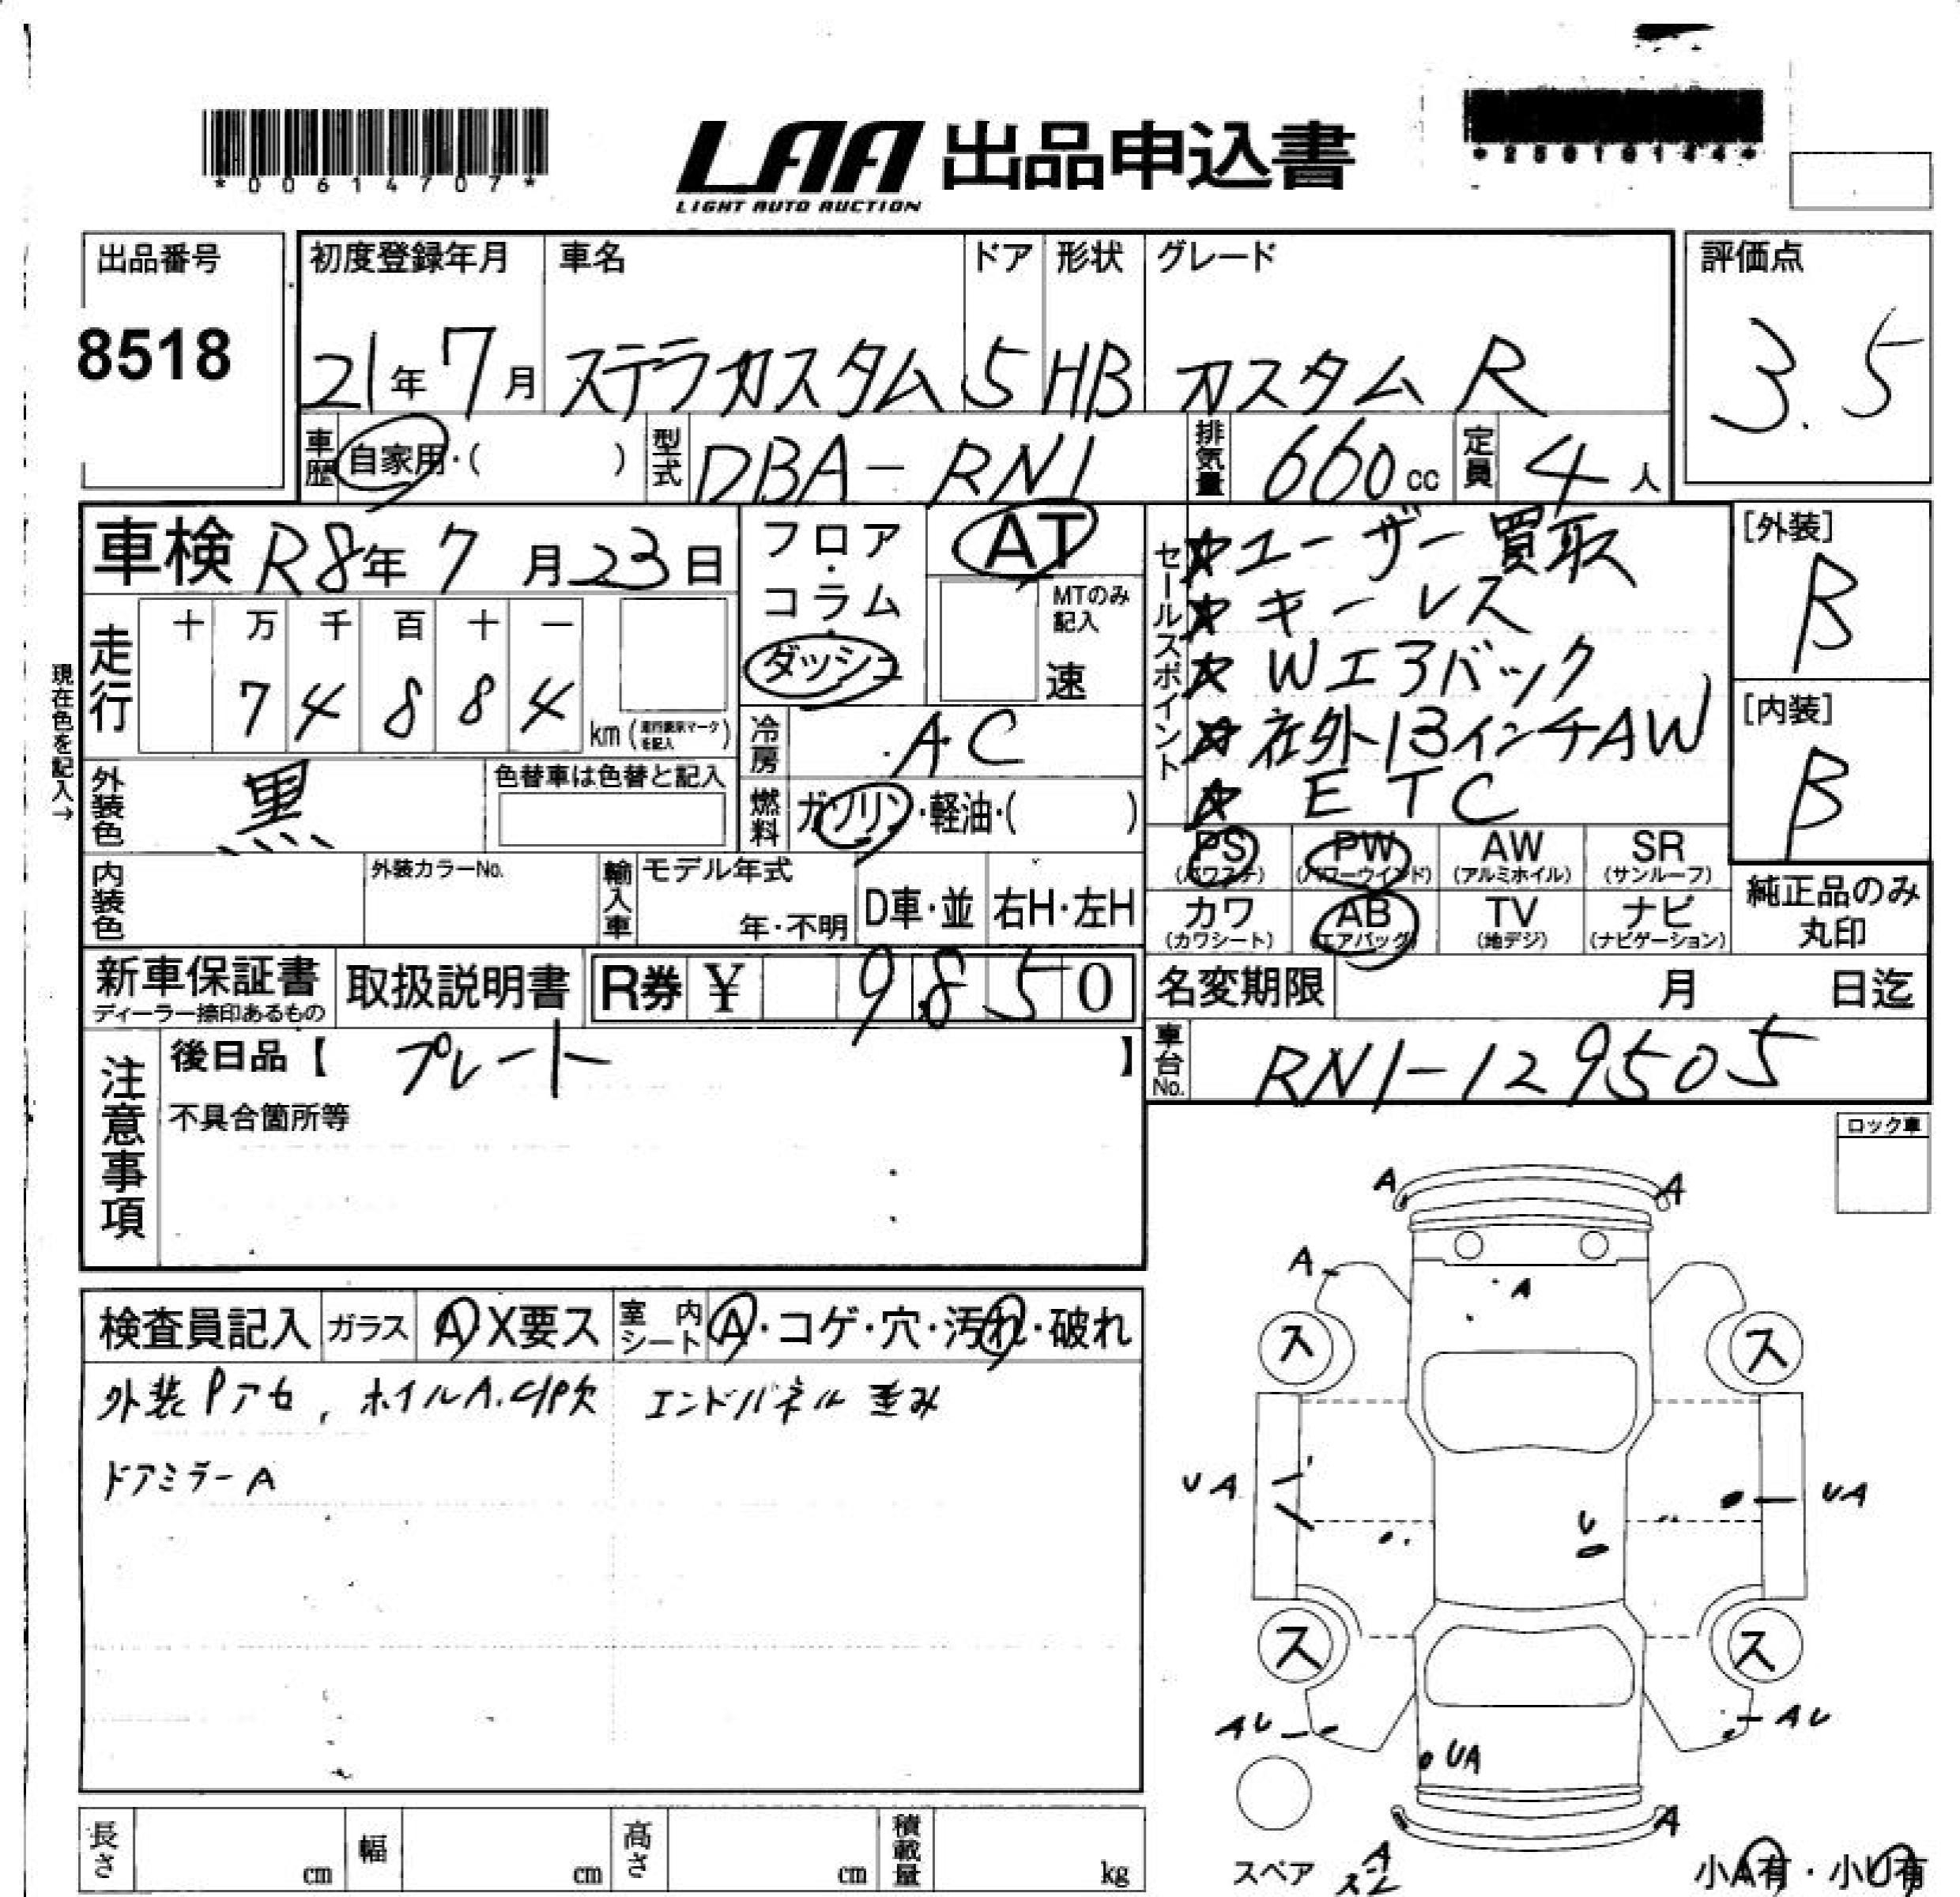 *00614707*
LAA 出品申込書
LIGHT AUTO AUCTION
出品番号
8518
初度登録年月 車名 ドア 形状 グレード
21年7月 ステラカスタム 5 HB カスタム R
評価点
3.5
車歴 自家用・( ) 型式 DBA-RN1 排気量 660cc 定員 4人
車検 R8年7月23日
フロア・コラム・ダッシュ
AT
MTのみ記入
速
セールスポイント
☆ユーザー買取
☆キーレス
☆Wエアバック
☆社外13インチAW
☆ETC
[外装]
B
[内装]
B
現在色を記入→
走行 十 万 千 百 十 一
7 4 8 8 4
km
冷房 AC
外装色 黒 色替車は色替と記入
燃料 ガソリン・軽油・( )
PS PW AW SR
(パワステ) (パワーウインド) (アルミホイル) (サンルーフ)
カワ AB TV ナビ
(カワシート) (エアバッグ) (地デジ) (ナビゲーション)
純正品のみ
丸印
内装色 外装カラーNo. 輸入車 モデル年式
年・不明 D車・並 右H・左H
新車保証書 取扱説明書 R券 ¥ 9850
ディーラー捺印あるもの
名変期限 月 日迄
車台No. RN1-129505
注意事項
後日品【 プレート 】
不具合箇所等
ロック車
検査員記入 ガラス A X要ス 室内シート A・コゲ・穴・汚れ・破れ
外装Pアセ, ホイルA.C/P欠 エンドパネル歪み
ドアミラーA
A A
A
A
ス ス
UA UA
U
ス ス
AU AU
UA
A
スペア
小A有・小U有
長さ cm 幅 cm 高さ cm 積載量 kg